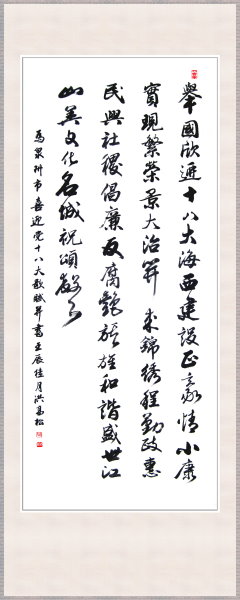 舉國欣迎十八大海西建設正豪情小康
實現繁榮景大治開來錦綉程勤政惠
民興社稷倡廉反腐艷旗旌和諧盛世江
山美文化名城祝頌聲
為泉州市喜迎党十八大敬賦并書壬辰佳月洪高松